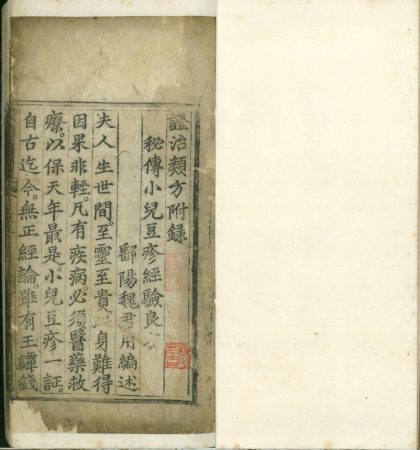 證治類方附録
秘傳小兒豆疹經驗良
鄱陽魏君用編述
夫人生世間。至靈至貴。身難得
因果非輕。凡有疾病。必須醫藥救
療。以保天年。最是小兒豆疹一証。
自古迄今。無正經論。雖有王譚錢